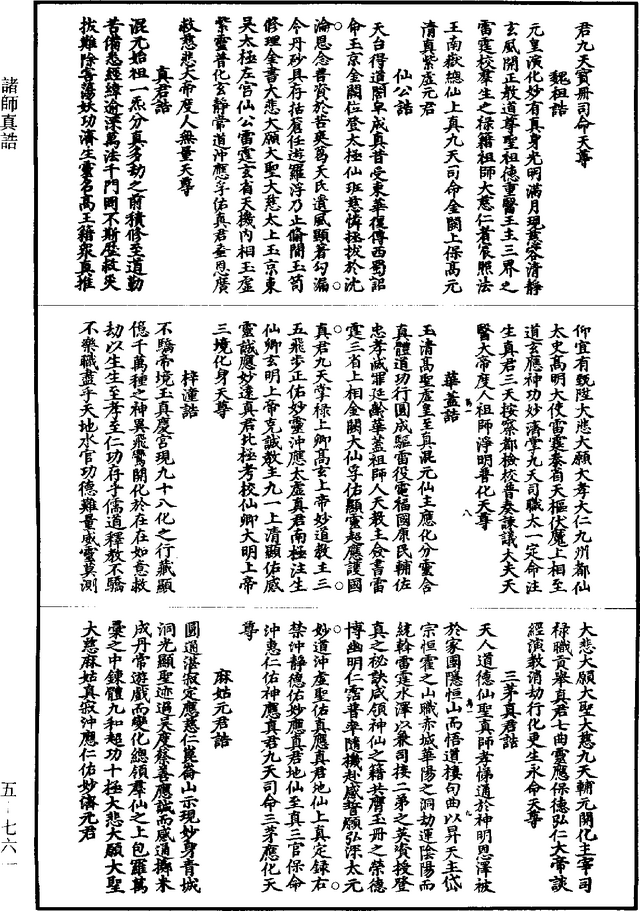 諸師真誥
五—七六一
君九天寶册司命天尊
魏祖誥
元皇演化妙有真身光明滿月現慈容清靜
玄風開正教道尊聖祖德重醫王主三界之
雷霆校羣生之祿籍祖師大慈仁者宸照法
王南嶽總仙上真九天司命金闕上保高元
清真紫虛元君
仙公誥
天台得道閤皁成真昔受東華復傳西蜀詔
命玉京金闕位登太極仙班慈憐拯拔於沉
淪恩念普資於苦爽葛天氏遺風顯著勾漏
令丹砂具存括蒼任遊羅浮乃止翛閒玉笥
修理金書大悲大願大聖大慈太上玉京東
吳太極左宮仙公雷霆玄省天機內相玉虛
紫靈普化玄靜常道沖應孚佑真君垂恩廣
救慈悲大帝度人無量天尊
真君誥
混元始祖一炁分真多劫之前積修至道勤
苦備悉經緯逾深萬法千門罔不斯歷救災
拔難除害蕩妖功濟生靈名高玉籍衆真推
仰宜有甄陞大悲大願大孝大仁九州都仙
太史高明大使雷霆泰省天樞伏魔上相至
道玄應神功妙濟掌九天司職太一定命注
生真君三天按察都檢校普奏諫議大夫天
醫大帝度人祖師淨明普化天尊
華蓋誥
玉清高聖虛皇至真混元仙主應化分靈合
真體道功行圓成驅雷役電福國康民輔佐
忠孝滅罪延齡華蓋祖師人天教主僉書雷
霆三省上相金闕大仙孚佑顯靈超應護國
真君九天掌祿上卿高玄上帝妙道教主三
五飛步正佑妙靈沖應太虛真君南極注生
仙卿玄明上帝克誠教主九一上清顯佑威
靈誠應妙達真君北極考校仙卿大明上帝
三境化身天尊
梓潼誥
不驕帝境玉真慶宮現九十八化之行藏顯
億千萬種之神異飛鸞開化於在在如意救
劫以生生至孝至仁功存乎儒道釋教不驕
不樂職盡乎天地水官功德難量威靈莫測
大悲大願大聖大慈九天輔元開化主宰司
祿職貢舉真君七曲靈應保德弘仁大帝談
經演教消劫行化更生永命天尊
三茅真君誥
天人道德仙聖真師孝悌通於神明恩澤被
於家國隱恒山而悟道棲句曲以昇天主岱
宗恒霍之山職赤城華陽之洞劫運陰陽而
統幹雷霆水澤以兼司接二弟之英資授登
真之秘訣咸領神仙之籍共膺玉册之榮德
博幽明仁霑普率隨機赴感誓願弘深太元
妙道沖虛聖佑真應真君地仙上真定錄右
禁沖靜德佑妙應真君地仙至真三官保命
沖惠仁佑神應真君九天司命三茅應化天
尊
麻姑元君誥
圓通湛寂定應慈仁崑崙山示現妙身青城
洞光顯聖迹過吳度蔡善應誠而感通擲米
成丹常遊戲而變化總領羣仙之上包羅萬
彙之中鍊體九和超功十極大悲大願大聖
大慈麻姑真寂沖應仁佑妙濟元君